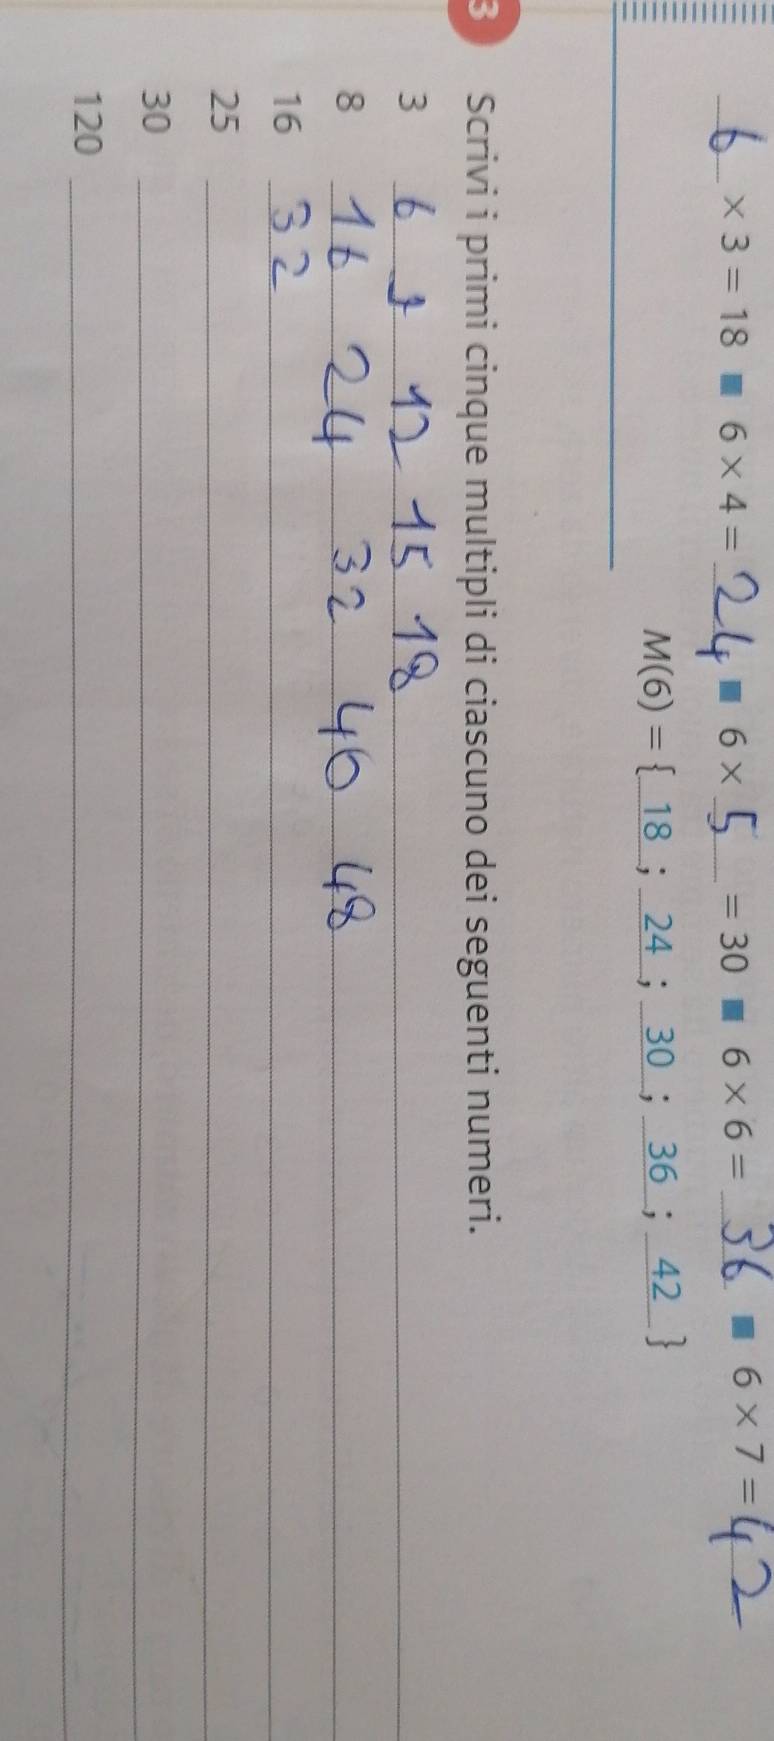 6 × 3 = 18 ■ 6 × 4 = 24 ■ 6 × 5 = 30 ■ 6 × 6 = 36 ■ 6 × 7 = 42
M(6) = { 18 ; 24 ; 30 ; 36 ; 42 }
3 Scrivi i primi cinque multipli di ciascuno dei seguenti numeri.
3 6 12 15 18
8 16 24 32 40 48
16 32
25
30
120